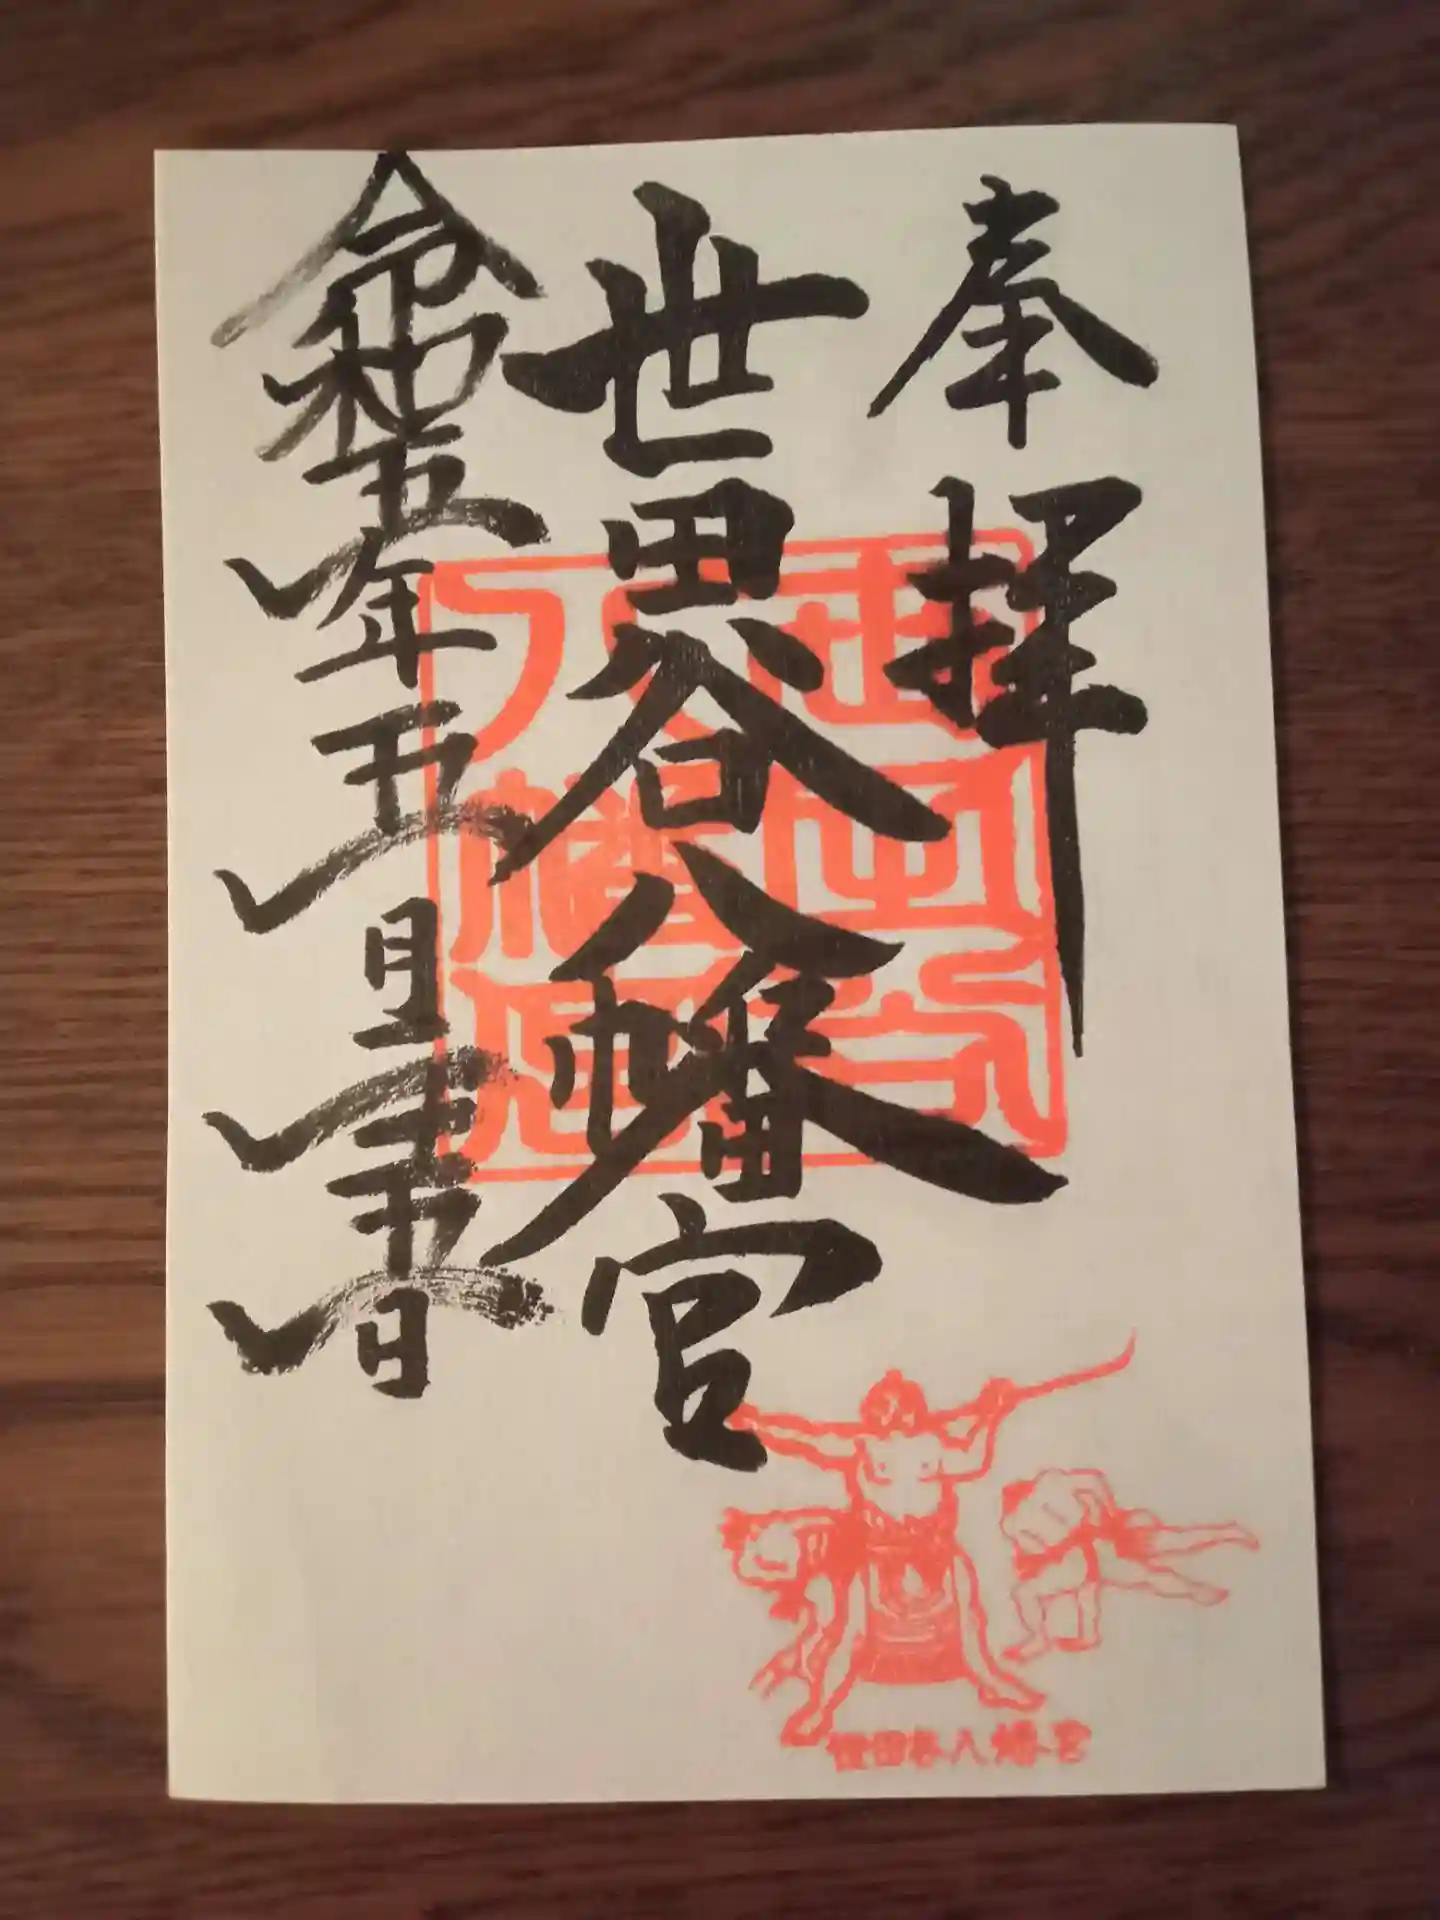 奉拝
世田谷八幡宮
令和五年五月二十五日
世田谷
八幡宮
世田谷八幡宮